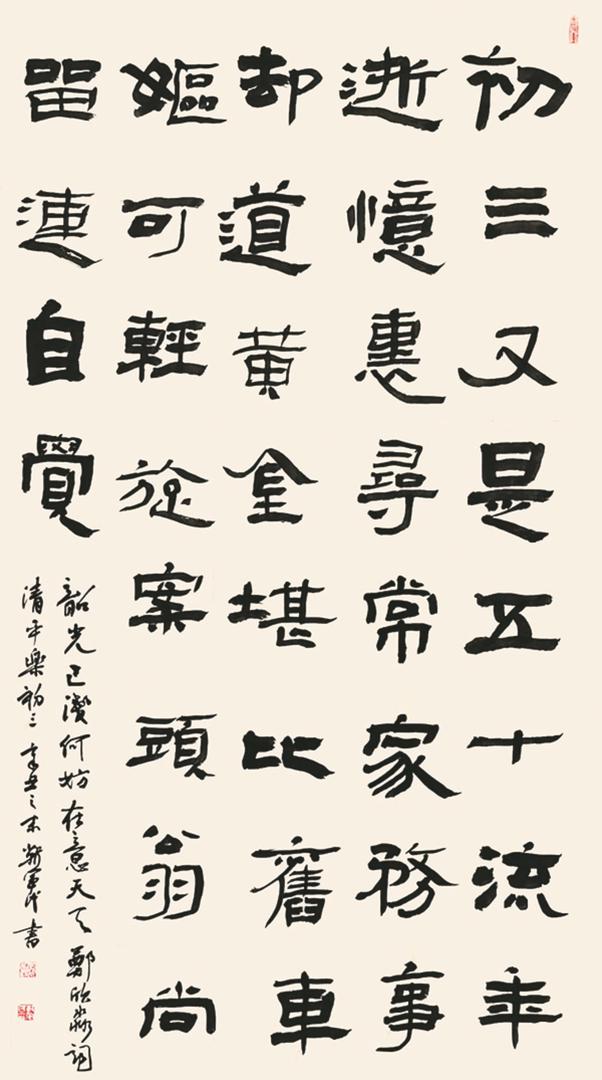 初三又是五十流年
逝憶惠尋常家務事
却道黃金堪比舊車
嫗可輕旋案頭翁尚
留連自覺
韶光已淺何妨在意天天 鄭欣淼詞
清平樂初三 辛丑之末 軍民書